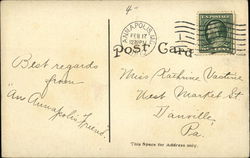 4"
ANNAPOLIS, M
FEB 17
Post Card
Best regards
from
"An Annapolis Friend."
Miss Kathrine Vastine
West Market St
Danville,
Pa.
This Space for Address only.